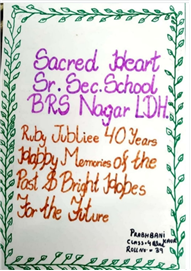 Sacred Heart
Sr. Sec. School
BRS Nagar LDH.
Ruby Jubliee 40 Years
Happy Memories of the
Past & Bright Hopes
For the Future
PRABHBANI
KAUR
CLASS-4
ROLL NO - 39